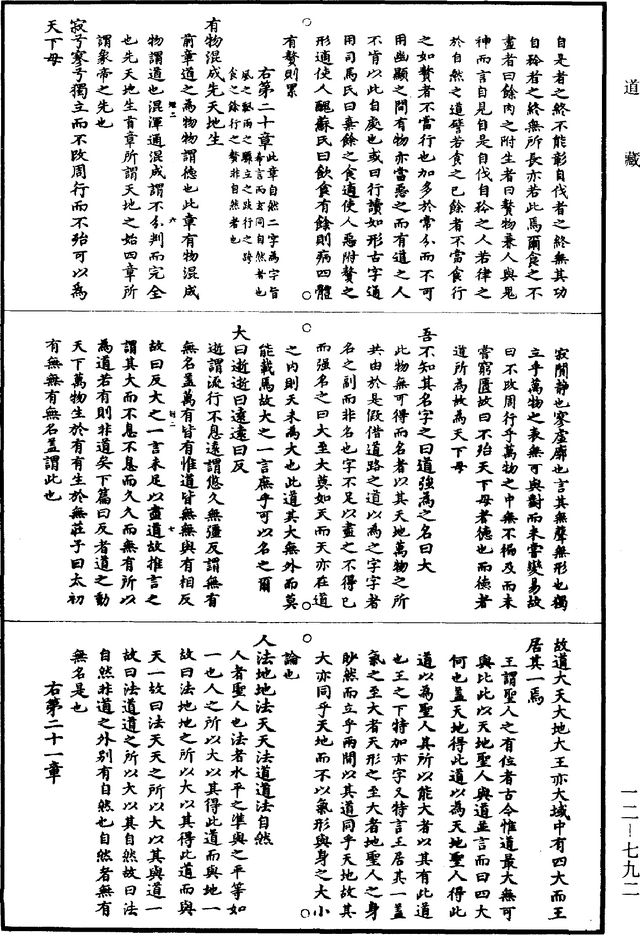 道藏
自是者之終不能彰自伐者之終無其功
自矜者之終無所長亦若此焉爾食之不
盡者曰餘肉之附生者曰贅物兼人與鬼
神而言自見自是自伐自矜之人若律之
於自然之道譬若食之已餘者不當食行
之如贅者不當行也加多於常分而不可
用幽顯之間有物亦當惡之而有道之人
不肯以此自處也或曰行讀如形古字通
用司馬氏曰棄餘之食適使人惡附贅之
形適使人醜蘇氏曰飲食有餘則病四體
有贅則累
右第二十章此章自然二字為字旨希言而玄同自然者也風之飄雨之驟立之跂行之跨食之餘行之贅非自然者也
有物混成先天地生
前章道之為物物謂德也此章有物混成
物謂道也混渾通混成謂不分判而完全
也先天地生首章所謂天地之始四章所
謂象帝之先也
寂兮寥兮獨立而不改周行而不殆可以為
天下母
寂闃靜也寥虛廓也言其無聲無形也獨
立乎萬物之表無可與對而未嘗變易故
曰不改周行乎萬物之中無不徧及而未
嘗窮匱故曰不殆天下母者德也而德者
道所為故為天下母
吾不知其名字之曰道強為之名曰大
此物無可得而名者以其天地萬物之所
共由於是假借道路之道以為之字字者
名之副而非名也字不足以盡之不得已
而强名之曰大至大莫如天而天亦在道
之内則天未為大也此道其大無外而莫
能載焉故大之一言庶乎可以名之爾
大曰逝逝曰遠遠曰反
逝謂流行不息遠謂悠久無彊反謂無有
無名蓋萬有皆有惟道皆無無與有相反
故曰反大之一言未足以盡道故推言之
謂其大而不息不息而久久而無有所以
為道若有則非道矣下篇曰反者道之動
天下萬物生於有有生於無莊子曰太初
有無無有無名蓋謂此也
故道大天大地大王亦大域中有四大而王
居其一焉
王謂聖人之有位者古今惟道最大無可
與比此以天地聖人與道並言而曰四大
何也蓋天地得此道以為天地聖人得此
道以為聖人其所以能大者以其有此道
也王之下特加亦字又特言王居其一蓋
氣之至大者天形之至大者地聖人之身
眇然而立乎兩間以其道同乎天地故其
大亦同乎天地而不以氣形與身之大小
論也
人法地地法天天法道道法自然
人者聖人也法者水平之準與之平等如
一也人之所以大以其得此道而與地一
故曰法地地之所以大以其得此道而與
天一故曰法天天之所以大以其與道一
故曰法道道之所以大以其自然故曰法
自然非道之外别有自然也自然者無有
無名是也
右第二十一章
一二—七九二